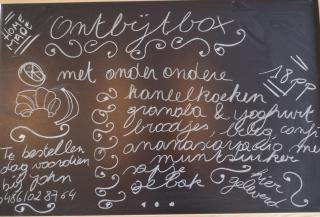 HOME MADE
Ontbijtbox
met onder andere
18 pp
kaneelkoeken
granola & yoghurt
broodjes, beleg, conf
ananascarpaccio met
muntsuiker
gebak
...
hier geleverd
Te bestellen
dag voordien
bij John
0486/028764